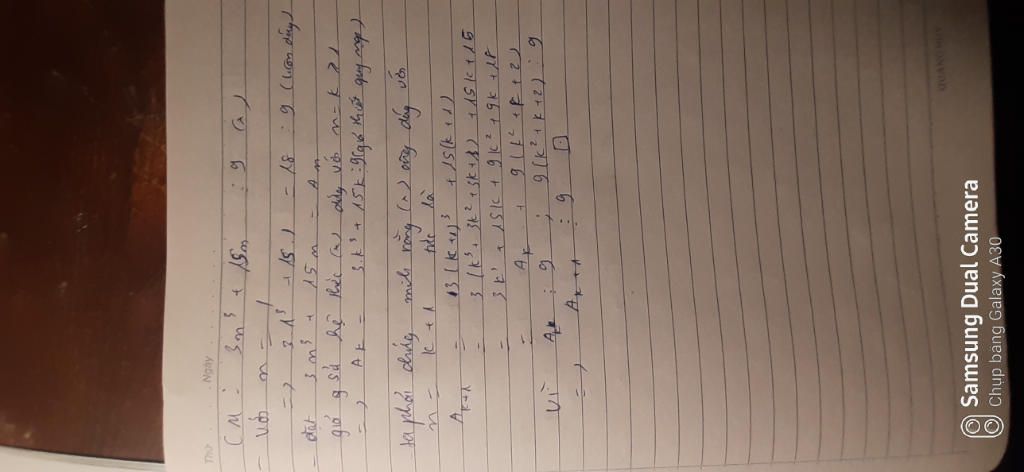 Thứ ........ Ngày ........
CM : 3n³ + 15n ⋮ 9 (1)
- Với n = 1
=> 3.1³ + 15.1 = 18 ⋮ 9 (luôn đúng)
- đặt 3n³ + 15n = An
giả sử hệ thức (1) đúng với n = k ≥ 1
=> Ak = 3.k³ + 15k ⋮ 9 (giả thiết quy nạp)
ta phải chứng minh rằng (1) cũng đúng với
n = k + 1 tức là
Ak+1 = 3(k+1)³ + 15(k+1)
= 3(k³ + 3k² + 3k + 1) + 15k + 15
= 3k³ + 15k + 9k² + 9k + 18
= Ak + 9(k² + k + 2)
Vì Ak ⋮ 9 ; 9(k² + k + 2) ⋮ 9
=> Ak+1 ⋮ 9 □
QUANG HUY
Samsung Dual Camera
Chụp bằng Galaxy A30